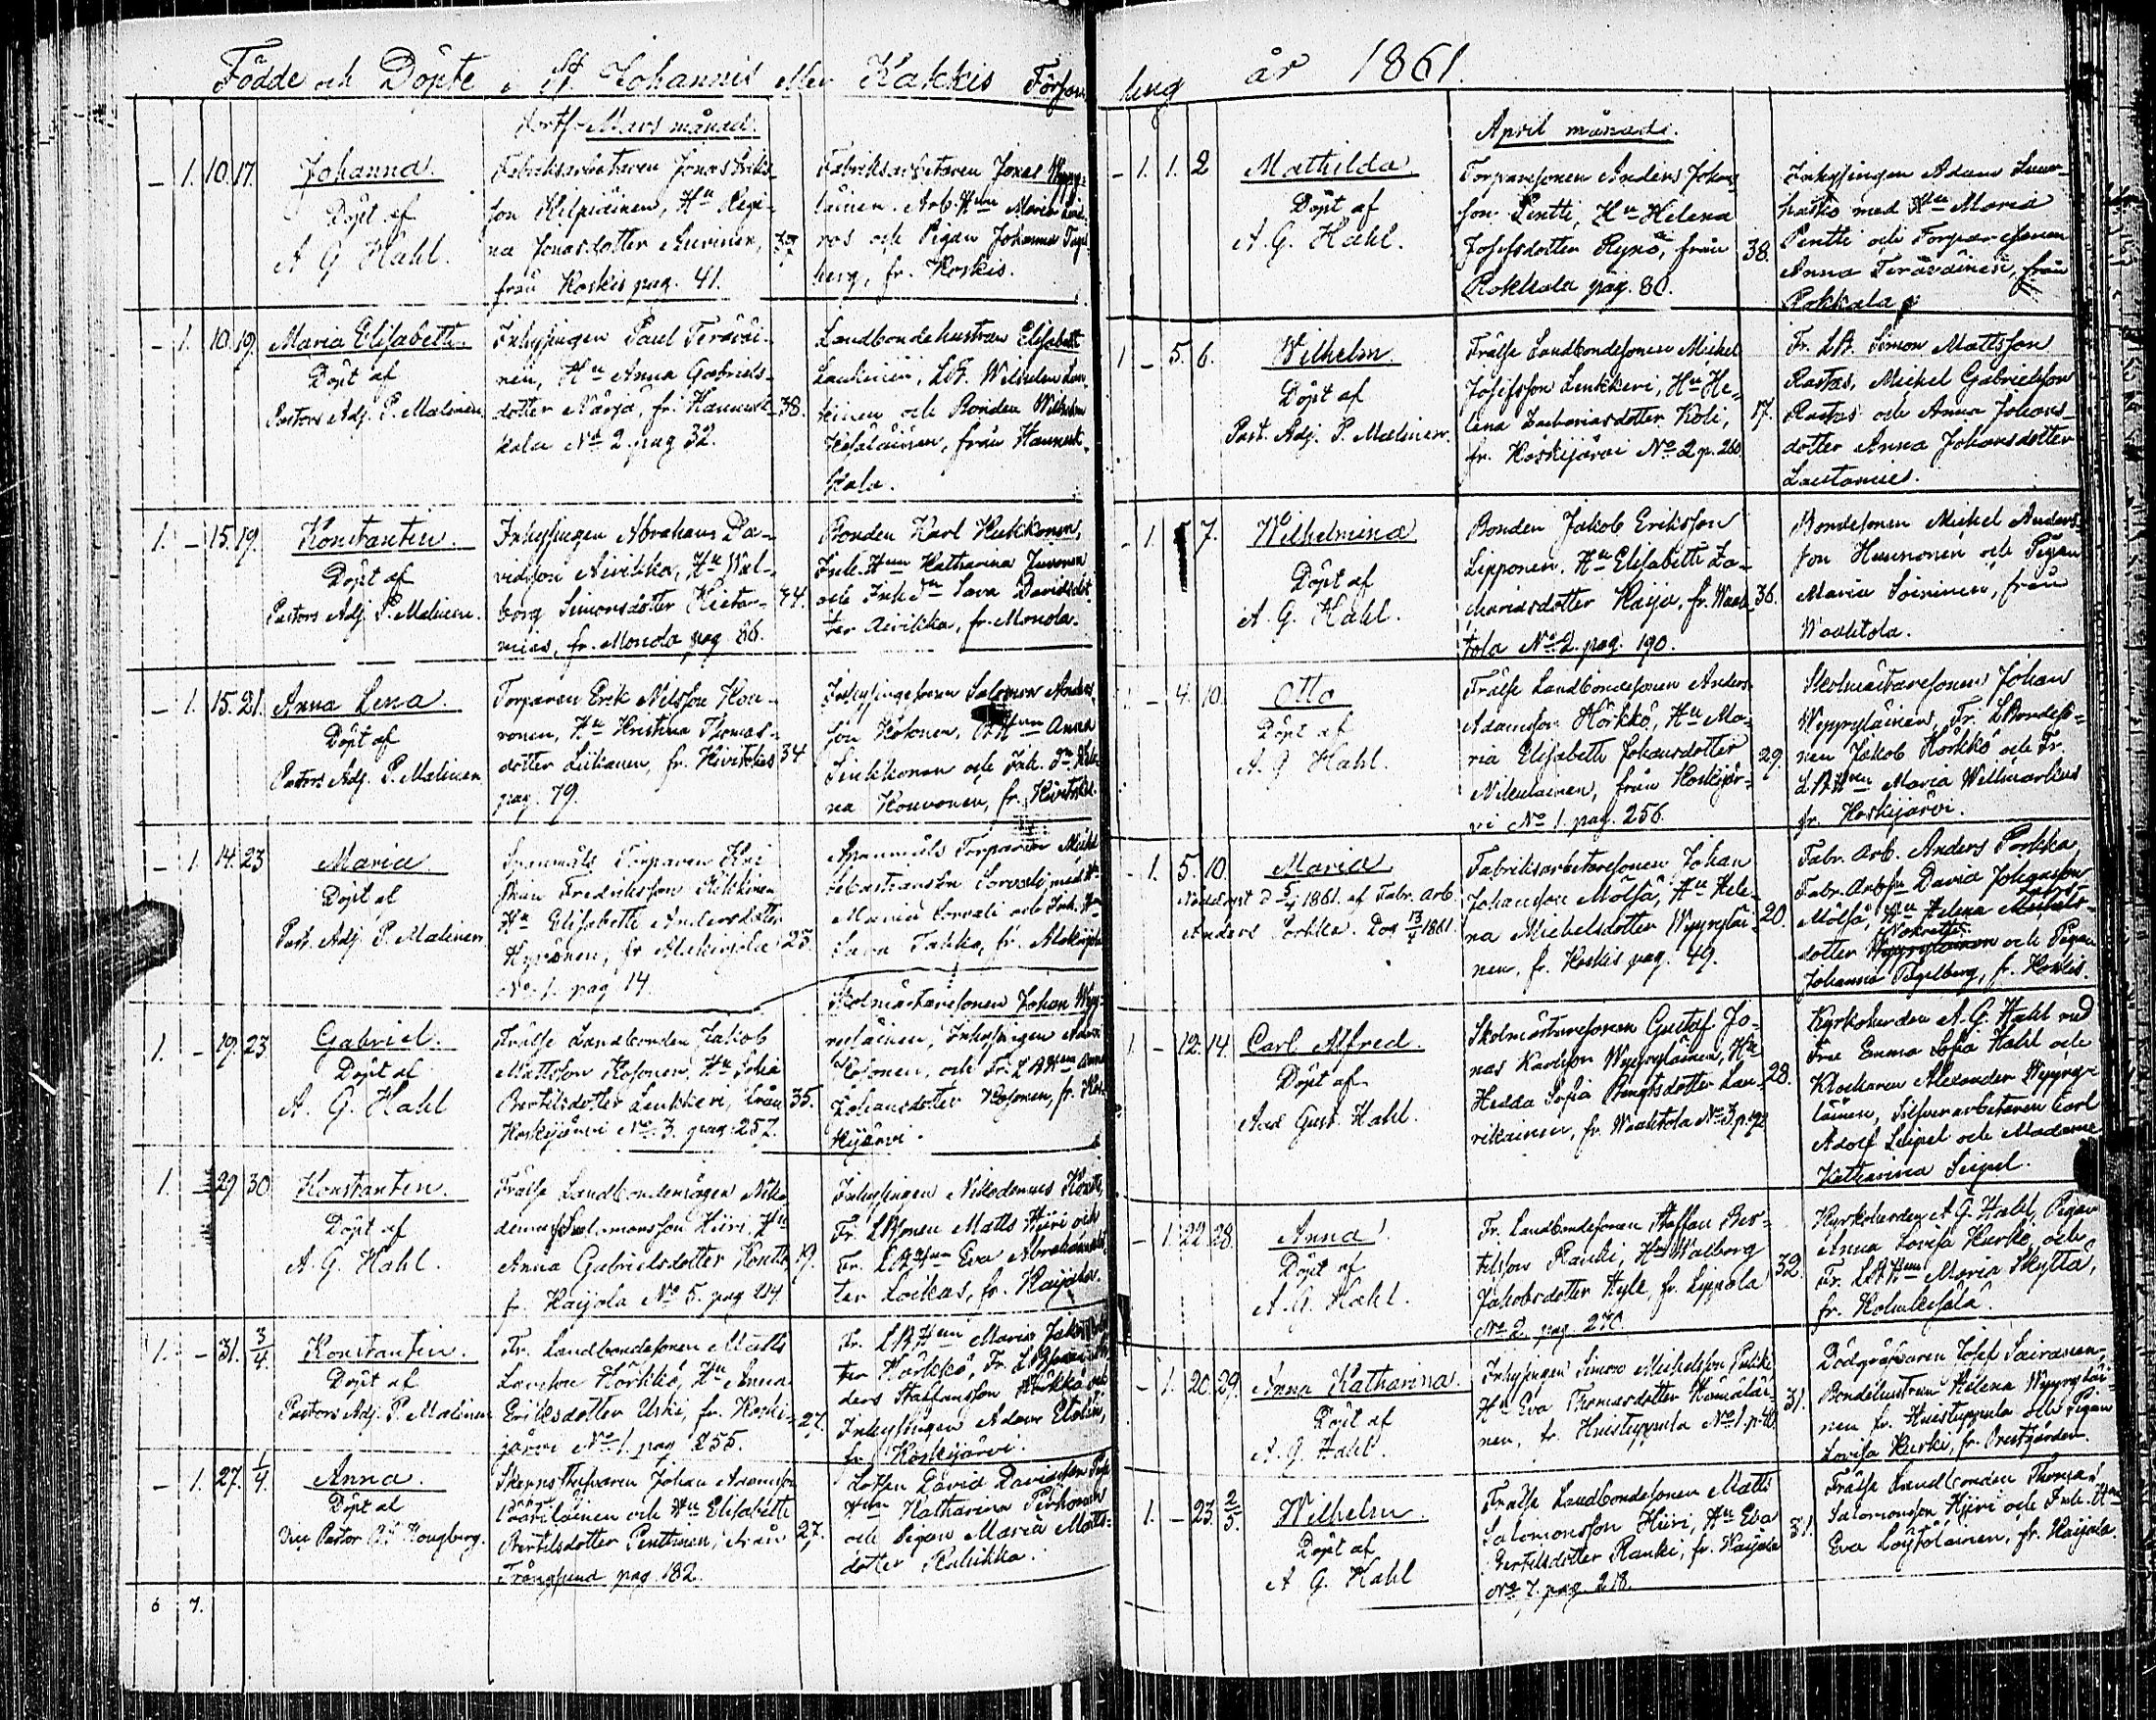 Födde och Döpte i St. Johannis eller Kakkis Försam
ling år 1861.
Fortf. Mars månad.
- 1. 10. 17. Johanna.
Döpt af
A. G. Hahl.
Fabriksarbetaren Jonas Eriks-
son Kilpiäinen, Hu Regi-
na Jonasdotter Auvinen,
från Koskis pag. 41.
37
Fabriksarbetaren Jonas Wypy-
läinen, Arb. Hun Maria
ros och Pigan Johanna Tegel-
berg, fr. Koskis.
- 1. 10. 19. Maria Elisabeth.
Döpt af
Pastors Adj. P. Malinen.
Inhysingen Paul Teräväi-
nen, Hu Anna Gabriels-
dotter Närjä, fr. Hannuk-
kala No 2 pag 32.
38.
Landbondehustrun Elisabeth
Laukinen, LB. Wilhelm Lau-
kinen och Bonden Wilhelm
från Hannuk-
kala.
1. - 15. 19. Konstantin.
Döpt af
Pastors Adj. P. Malinen.
Inhysingen Abraham Da-
vidsson Aivikka, Hu Wal-
borg Simonsdotter Kieta-
mies, fr. Monola pag 66.
44.
Bonden Karl Huikkonen,
Inh. Hun Katharina Juvonen
och Inh. Du Sara Davidsdot-
ter Aivikka, fr. Monola.
- 1. 15. 21. Anna Lena.
Döpt af
Pastors Adj. P. Malinen
Torparen Erik Nilsson Kou-
vonen, Hu Kristina Thomas-
dotter Liikanen, fr.
pag. 79.
34
Inhysingesonen Salomon Anders-
son Kokonen, Hun Anna
Sinkkonen och Inh. Du Hele-
na Kouvonen, fr.
- 1. 14. 23 Maria
Döpt af
Past. Adj. P. Malinen
Spanmåls Torparen Kri
stian Fredriksson Kikkinen
Hu Elisabeth Andersdotter
Hyvönen, fr Alakirjola
No 1. pag 14.
25.
Spanmåls Torparen Michel
Sebastiansson Sorvali med H
Maria Sorvali och Inh. Hu
Sara Takka, fr. Alakirjola
1. - 19. 23 Gabriel.
Döpt af
A. G. Hahl
Frälse Landbonden Jakob
Mattsson Kosonen, Hu Sofia
Bertilsdotter Leukkeri, från
Koskijärvi No. 3. pag. 257.
35.
Skolmästaresonen Johan Wyp-
ryläinen, Inhysingen Adam
Kosonen, och Fr. LB Hun Anna
Johansdotter Kosonen, fr. Kos-
kijärvi.
1. - 29 30 Konstantin.
Döpt af
A. G. Hahl.
Frälse Landbondemågen Niko
demus Salomonsson Hiiri, Hu
Anna Gabrielsdotter Kontti,
fr. Kaijola No 5. pag 214
19.
Inhysingen Nikodemus Kontti,
Fr. LBsonen Matts Hiiri och
Fr. LB Hun Eva Abrahamsdot-
ter Loikas, fr. Kaijola
1. - 31. 3/4. Konstantin.
Döpt af
Pastors Adj. P. Malinen
Fr. Landbondesonen Matts
Larsson Hörkkö, Hu Anna
Eriksdotter Uski, fr. Koski-
järvi No 1. pag. 255.
27.
Fr. LB Hun Maria Jakobsdot
ter Hörkkö, Fr. LBsonen An-
ders Staffansson Hörkkö och
Inhysingen Adam
fr. Koskijärvi.
- 1. 27. 1/4. Anna.
Döpt af
Vice Pastor Hougberg.
Johan Adamsson
Paavilainen och Hu Elisabeth
Bertilsdotter Penttinen, från
Trångsund pag. 182.
27.
Lotsen David Davidsson
Hun Katharina Pirhonen
och Pigan Maria Matts-
dotter Kulikka.
6 7.
April månad.
- 1. 1. 2 Mathilda
Döpt af
A. G. Hahl.
Torparesonen Anders Johans-
son Pentti, Hu Helena
Josefsdotter Rynö, från
Rokkala pag. 80.
38.
Inhysingen Adam
med Hu Maria
Pentti och Torparesonen
Anna Teräväinen, från
Rokkala.
1 - 5. 6. Wilhelm.
Döpt af
Past. Adj. P. Malinen.
Frälse Landbondesonen Michel
Josefsson Leukkeri, Hu He-
lena Zachariasdotter Koli,
fr. Koskijärvi No 2 p. 260
17.
Fr. LB. Simon Mattsson
Rastas, Michel Gabrielsson
Rastas och Anna Johans-
dotter Anna Johansdotter
Lautamies.
- 1. 7. Wilhelmina
Döpt af
A. G. Hahl.
Bonden Jakob Eriksson
Lipponen, Hu Elisabeth Za-
chariasdotter Kaija, fr. Waah-
tola No 2. pag. 190.
36.
Bondesonen Michel Anders-
son Hannonen och Pigan
Maria Soininen, från
Waahtola.
1 - 4. 10. Otto
Döpt af
A. G Hahl.
Frälse Landbondesonen Anders
Adamsson Hörkkö, Hu Ma-
ria Elisabeth Johansdotter
Nikulainen, från Koskijär-
vi No 1. pag. 256.
29.
Skolmästaresonen Johan
Wypryläinen, Fr. LBondeso-
nen Jakob Hörkkö och Fr.
LB Hun Maria
fr. Koskijärvi.
- 1. 5. 10. Maria
Nöddöpt d 5/4 1861. af Fabr. Arb.
Anders Porkka. Dog 13/4 1861.
Fabriksarbetaresonen Johan
Johansson Mölsä, Hu Hele-
na Michelsdotter Wypryläi-
nen, fr. Koskis pag. 49.
20.
Fabr. Arb. Anders Porkka,
Fabr. Arbsn David Johansson
Mölsä, Hu Helena Michels-
dotter Wypryläinen och Pigan
Johanna Tegelberg, fr. Koskis.
1 - 12. 14. Carl Alfred.
Döpt af
And Gust. Hahl.
Skolmästaresonen Gustaf Jo-
nas Karlsson Wypryläinen, Hu
Hedda Sofia Bengtsdotter Lau-
rikainen, fr. Waahtola No 3. p. 192
28.
Kyrkoherden A. G. Hahl med
Fru Emma Sofia Hahl och
Klockaren Alexander Wypry-
läinen, Silfverarbetaren Carl
Adolf Seipel och Madame
Katharina Seipel.
- 1. 22. 28. Anna
Döpt af
A. G. Hahl.
Fr. Landbondesonen Staffan Ber-
tilsson Ranki, Hu Walborg
Jakobsdotter Hyle, fr. Lippola
No 2. pag. 270.
32.
Kyrkoherden A. G. Hahl, Pigan
Anna Lovisa Kurko, och
Fr. LB Hun Maria Skyttä,
fr. Kolmikesälä.
- 1. 20. 29. Anna Katharina.
Döpt af
A. G. Hahl
Inhysingen Simon Michelsson Pulkki
Hu Eva Thomasdotter Hämäläi-
nen, fr. Huistuppula No 1. p. 40.
31.
Dödgräfvaren Josef Sairanen,
Bondehustrun Helena Wypryläi-
nen fr. Huistuppula och Pigan
Lovisa Kurki, fr. Prestgården.
1. - 23. 2/5. Wilhelm
Döpt af
A. G. Hahl
Frälse Landbondesonen Matts
Salomonsson Hiiri, Hu Eva
Bertilsdotter Ranki, fr. Kaijola
No 7. pag. 218.
31.
Frälse Landbonden Thomas
Salomonsson Hiiri och Inh. Hun
Eva Löytöläinen, fr. Kaijola.